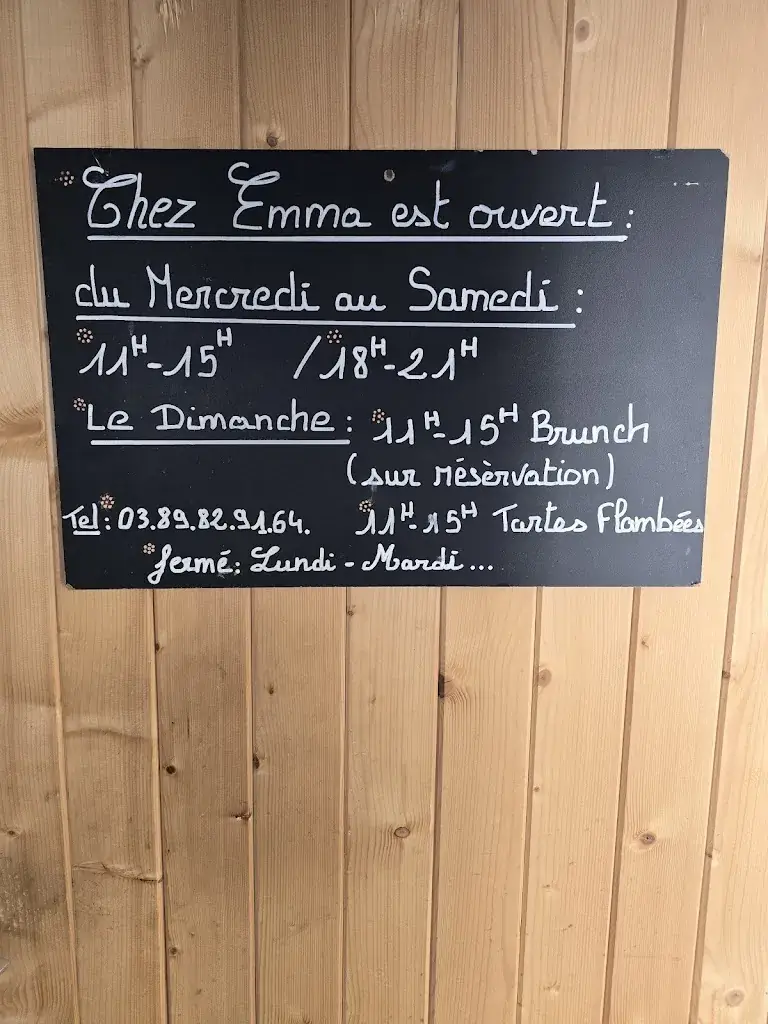 Chez Emma est ouvert :
du Mercredi au Samedi :
11H-15H /18H-21H
Le Dimanche : 11H-15H Brunch
(sur résèrvation)
Tel: 03.89.82.91.64. 11H-15H Tartes Flambées
fermé: Lundi - Mardi...